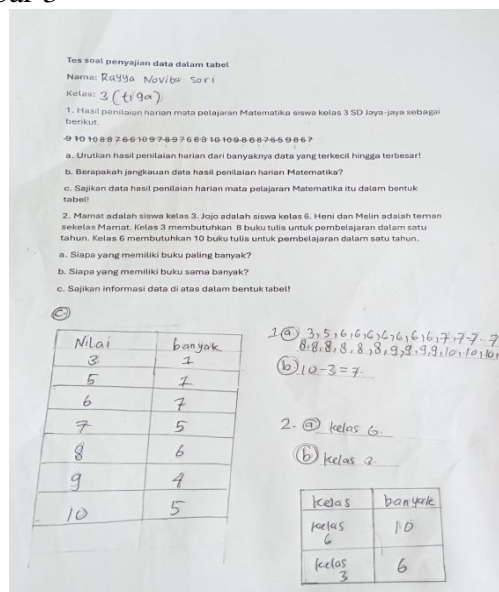 Tes soal penyajian data dalam tabel
Nama: Rayya Novita Sari
Kelas: 3 (tiga)
1. Hasil penilaian harian mata pelajaran Matematika siswa kelas 3 SD Jaya-jaya sebagai
berikut.
a. Urutkan hasil penilaian harian dari banyaknya data yang terkecil hingga terbesar!
b. Berapakah jangkauan data hasil penilaian harian Matematika?
c. Sajikan data hasil penilaian harian mata pelajaran Matematika itu dalam bentuk
tabel!
2. Mamat adalah siswa kelas 3. Jojo adalah siswa kelas 6. Heni dan Melin adalah teman
sekelas Mamat. Kelas 3 membutuhkan 8 buku tulis untuk pembelajaran dalam satu
tahun. Kelas 6 membutuhkan 10 buku tulis untuk pembelajaran dalam satu tahun.
a. Siapa yang memiliki buku paling banyak?
b. Siapa yang memiliki buku sama banyak?
c. Sajikan informasi data di atas dalam bentuk tabel!
c
Nilai banyak
3 1
5 1
6 7
7 5
8 6
9 4
10 5
1 a 3, 5, 6, 6, 6, 6, 6, 6, 6, 7, 7, 7, 7
8, 8, 8, 8, 8, 8, 9, 9, 9, 9, 10, 10, 10,
b 10 - 3 = 7.
2. a kelas 6.
b kelas 3
kelas banyak
kelas 6 10
kelas 3 6